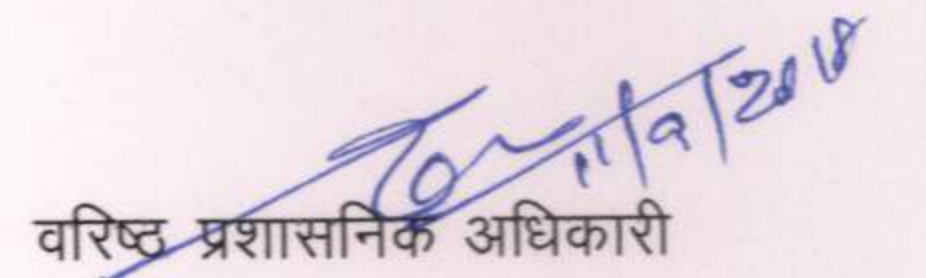 11/9/2018
वरिष्ठ प्रशासनिक अधिकारी